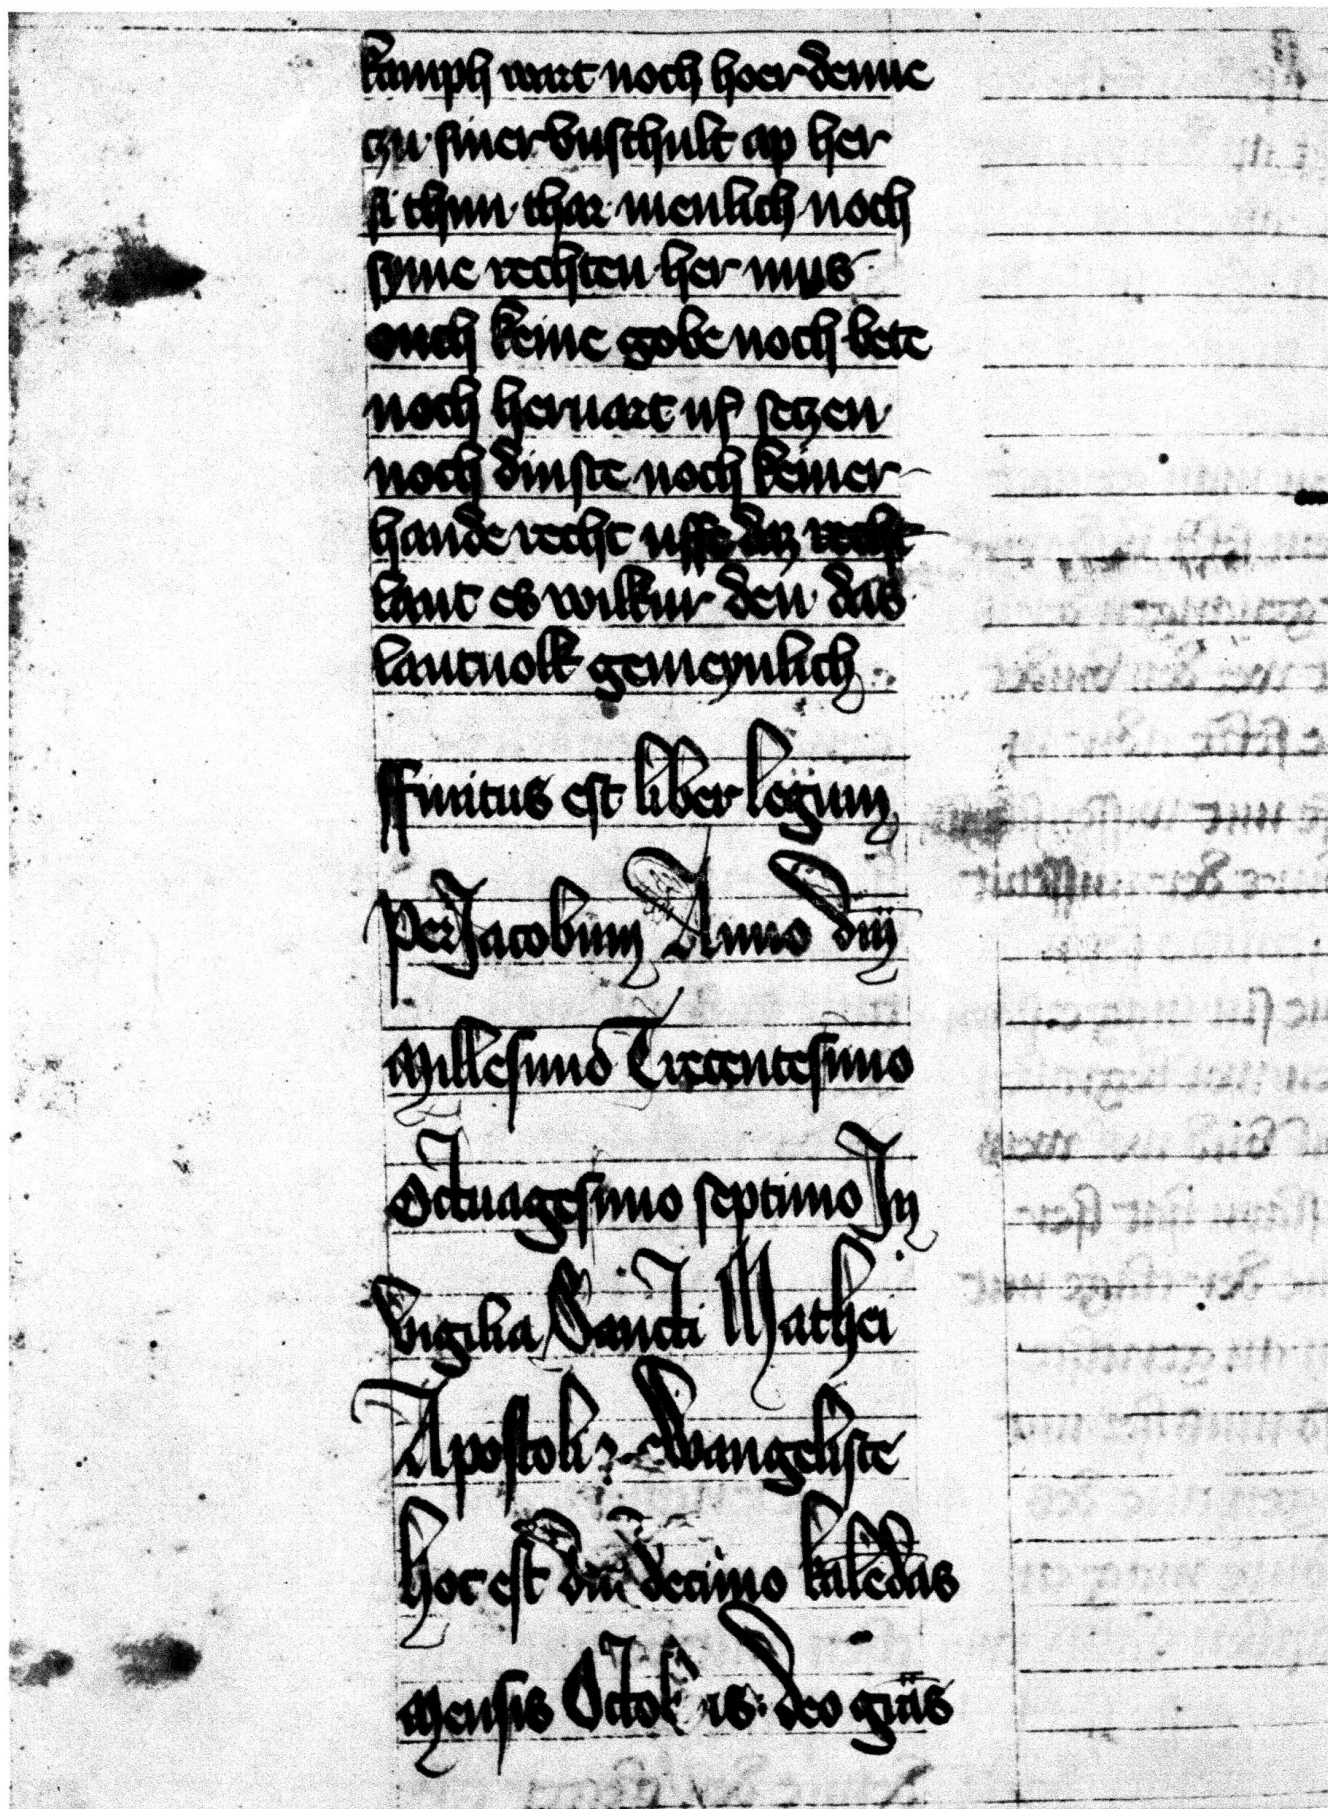 kamph wart noch hoer denne
zu siner vnschult ap her
si thun thar menlich noch
syme rechten her mus
ouch keine gobe noch bete
noch heruart uf setzen
noch dinste noch keiner
hande recht uffe daz recht
lant es wilkur den das
lantuolk gemeynlich
ffinitus est liber legum
Per Jacobum Anno dnj
Millesimo Trecentesimo
Octuagesimo septimo In
vigilia Sancti Mathei
Apostoli ⁊ Ewangeliste
hoc est decimo kaledas
Mensis Deo gras